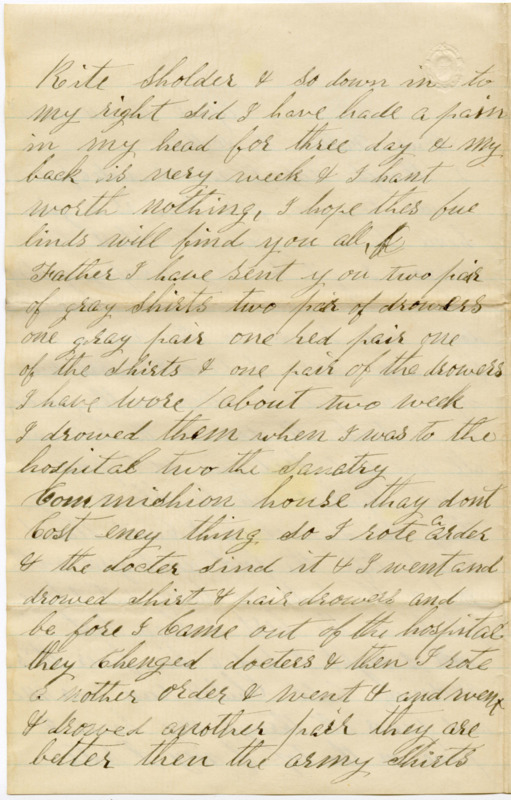 Rite Sholder & so down in to
my right Sid I have hade a pain
in my head for three day & my
back is very week & I hant
worth nothing, I hope thes fue
linds will find you all,
Father I have sent you two pair
of gray Shirts two pair of drowers
one gray pair one red pair one
of the shirts & one pair of the drowers
I have wore about two week
I drowed them when I was to the
hospital two the Sanatry
Commichion house thay dont
Cost eney thing so I rote a order
& the docter sind it & I went and
drowed Shirt & pair drowers and
be fore I Came out of the hospital
they Chenged docters & then I rote
a nother order & went & and went
& drowed another pair they are
better then the army Shirts